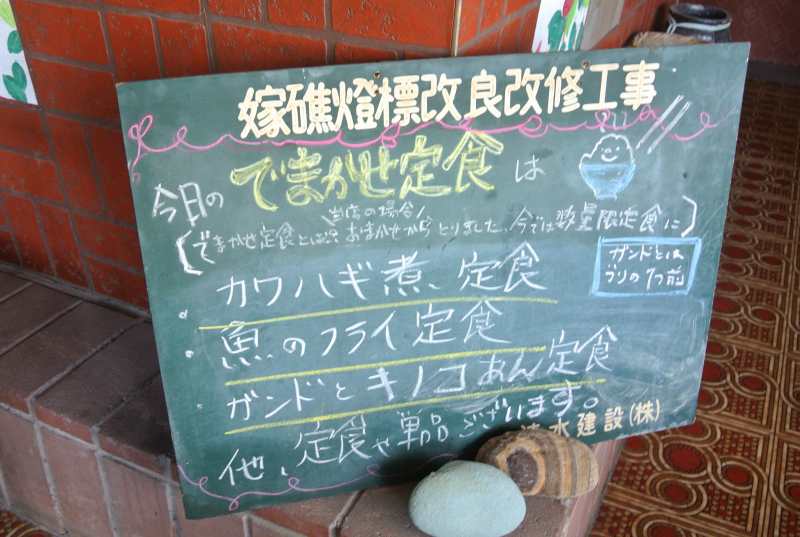 嫁礁燈標改良改修工事
今日の でまかせ定食 は
当店の場合
(でまかせ定食とは おまかせからとりました、今では数量限定食に)
ガンドとは
ブリの1つ前
カワハギ煮、定食
・魚のフライ定食
・ガンドとキノコあん定食
他、定食や単品ございます。
水建設(株)